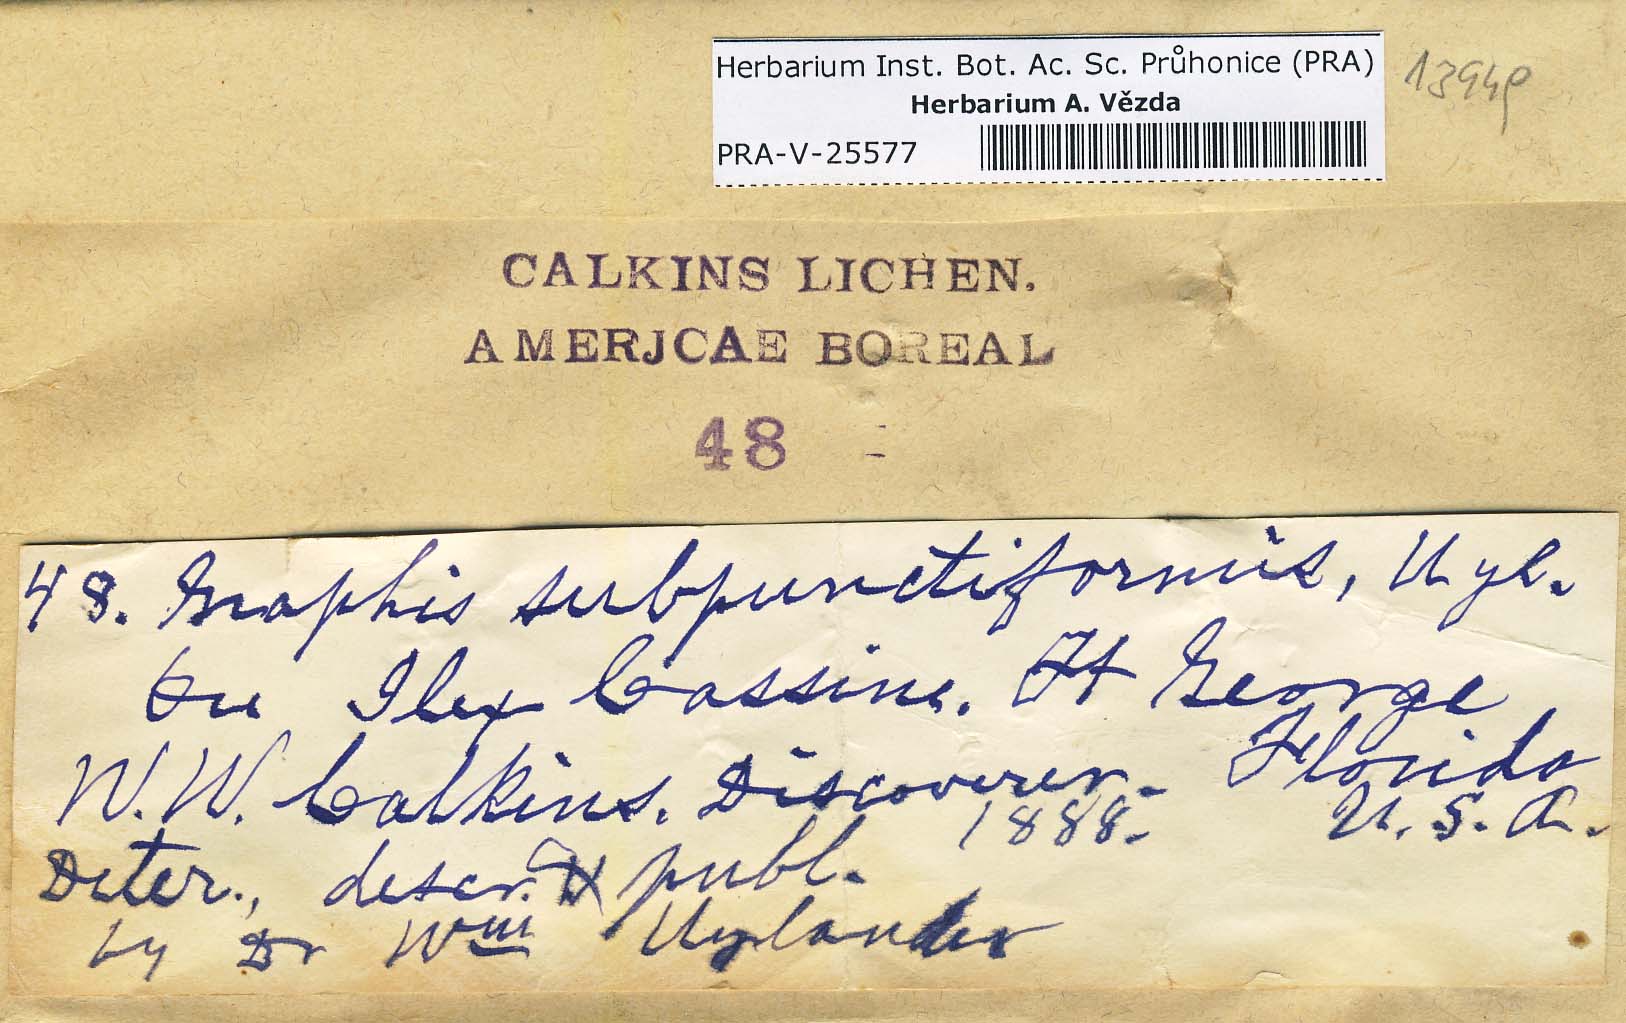 Herbarium Inst. Bot. Ac. Sc. Průhonice (PRA)
Herbarium A. Vězda
PRA-V-25577
CALKINS LICHEN.
AMERJCAE BOREAL
48 -
48. Graphis subpunctiformis, Nyl.
On Ilex Cassine. Ft George
W. W. Calkins. Discoverer. Florida
1888. U. S. A.
Deter., descr. & publ.
by Dr Wm Nylander